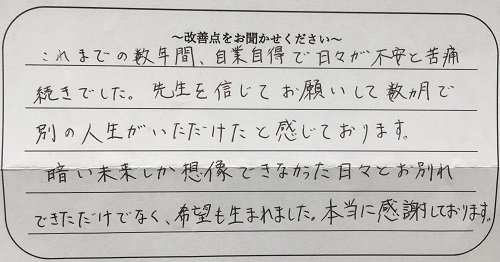 ～改善点をお聞かせください～
これまでの数年間、自業自得で日々が不安と苦痛
続きでした。先生を信じてお願いして数ヵ月で
別の人生がいただけたと感じております。
暗い未来しか想像できなかった日々とお別れ
できただけでなく、希望も生まれました。本当に感謝しております。